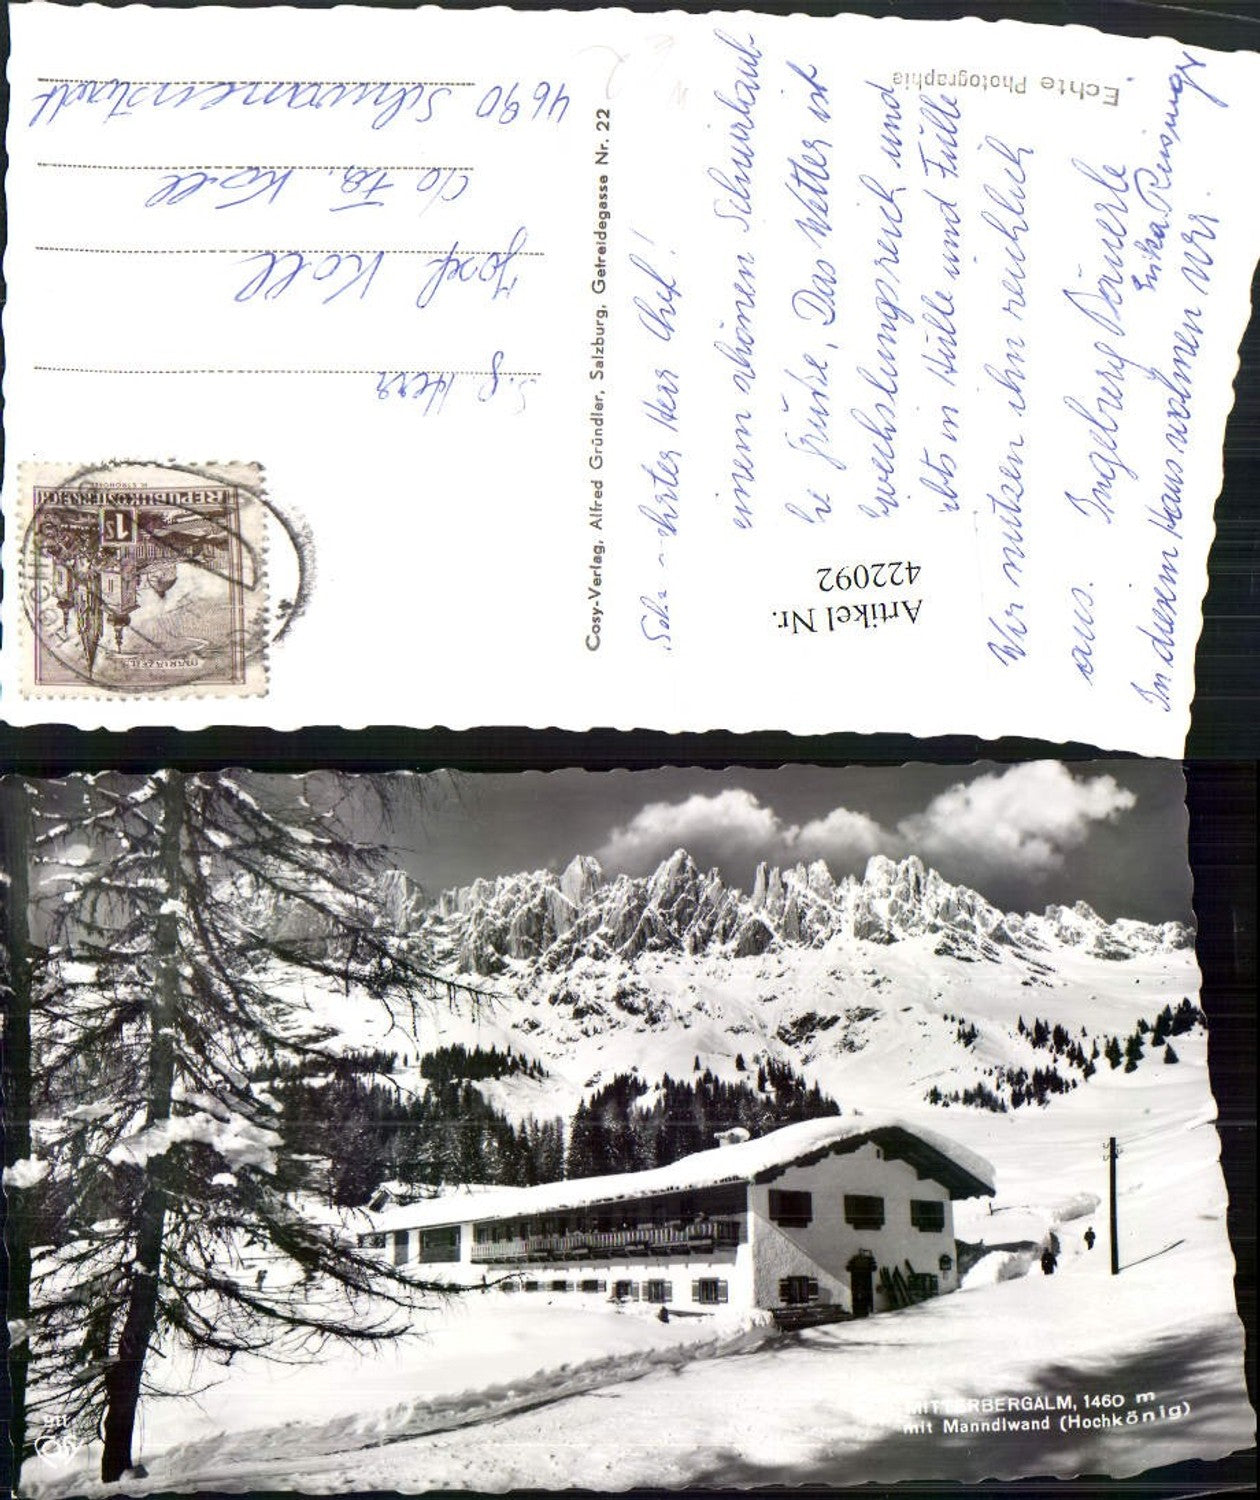 Sehr geehrter Herr Chef!
einen schönen Schiurlaub
Grüße. Das Wetter ist
und
ibts in Hülle und Fülle
Wir nützen ihn reichlich
aus. Ingeborg Bäuerle
Erika
In diesem Haus wohnen wir.
Echte Photographie
Artikel Nr.
422092
Cosy-Verlag, Alfred Gründler, Salzburg, Getreidegasse Nr. 22
S.g. Herr
Josef Koll
c/o Fa. Koll
4690 Schwanenstadt
REPUBLIK ÖSTERREICH
1s
MARIAZELL
911
MITTERBERGALM, 1460 m
mit Manndlwand (Hochkönig)